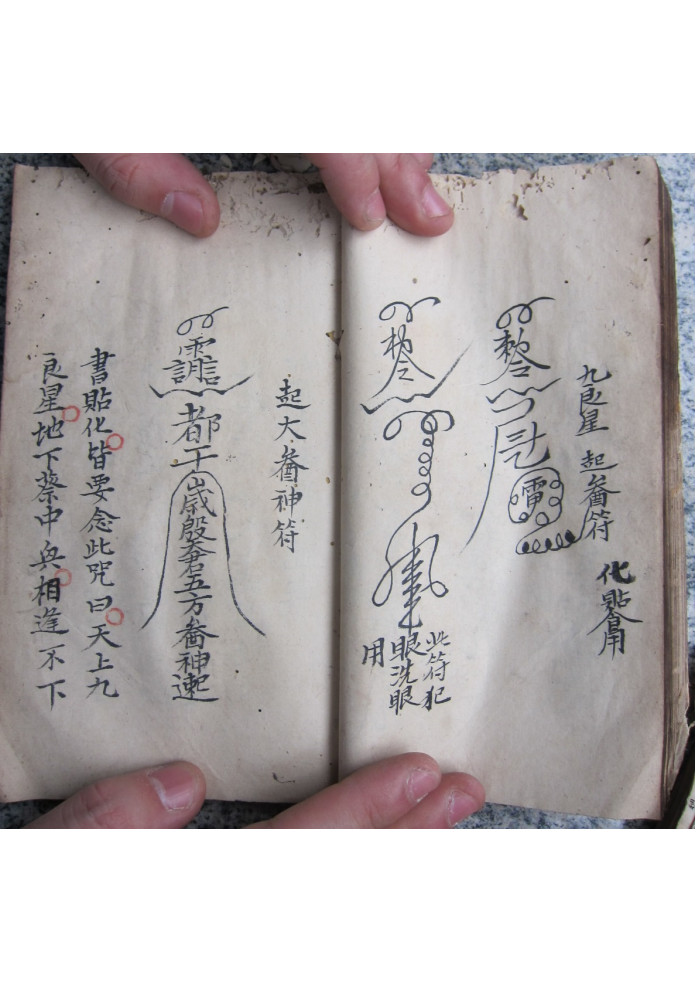 九良星 起𥙿符
化貼合用
敕令
雷
敕令
此符犯
眼洗眼
用
起大
神符
都天
歲殷
五方
神起
書貼化皆要念此咒曰天上九
良星地下蔡中兵相逢不下